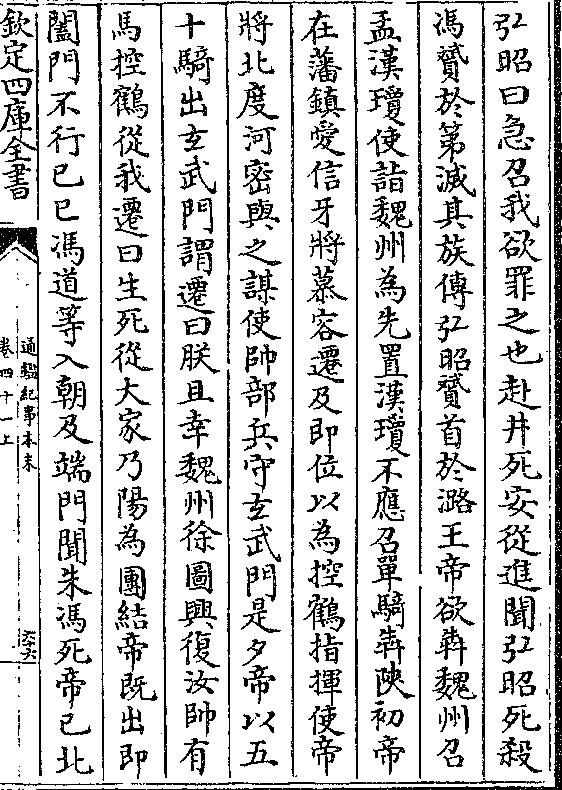 弘昭曰急召我欲罪之也赴井死安從進聞弘昭死殺
馮贇於第滅其族傳弘昭贇首於潞王帝欲犇魏州召
孟漢瓊使詣魏州為先置漢瓊不應召單騎犇陜初帝
在藩鎮愛信牙將慕容遷及即位以為控鶴指揮使帝
將北度河密與之謀使帥部兵守玄武門是夕帝以五
十騎出玄武門謂遷曰朕且幸魏州徐圖興復汝帥有
馬控鶴從我遷曰生死從大家乃陽為團結帝既出即
闔門不行己巳馮道等入朝及端門聞朱馮死帝已北
欽定四庫全書
通鑑紀事本末
卷四十一上
六六